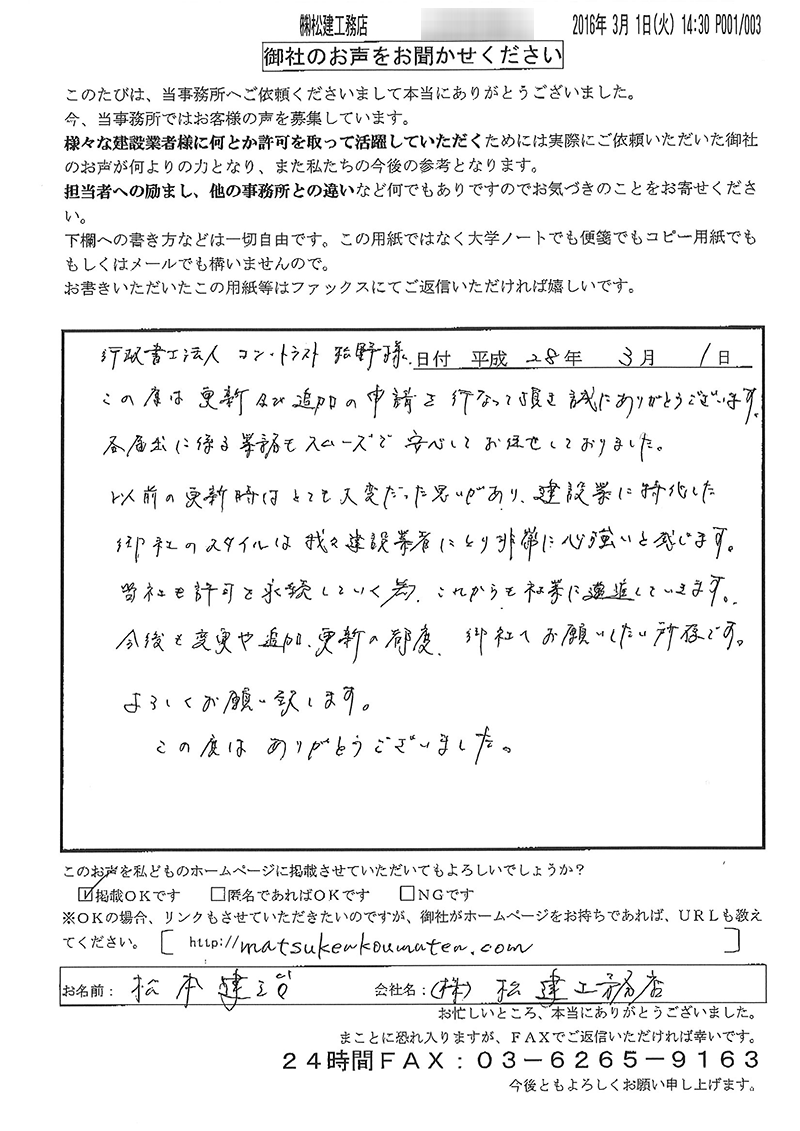 ㈱松建工務店 2016年 3月 1日(火) 14:30 P001/003
御社のお声をお聞かせください
このたびは、当事務所へご依頼くださいまして本当にありがとうございました。
今、当事務所ではお客様の声を募集しています。
様々な建設業者様に何とか許可を取って活躍していただくためには実際にご依頼いただいた御社
のお声が何よりの力となり、また私たちの今後の参考となります。
担当者への励まし、他の事務所との違いなど何でもありですのでお気づきのことをお寄せくださ
い。
下欄への書き方などは一切自由です。この用紙ではなく大学ノートでも便箋でもコピー用紙でも
もしくはメールでも構いませんので。
お書きいただいたこの用紙等はファックスにてご返信いただければ嬉しいです。
行政書士法人 コントラスト 松野様 日付 平成 28年 3月 1日
この度は 更新及び追加の申請を行なって頂き誠にありがとうございます。
各届出に係る業務もスムーズで安心してお任せしておりました。
以前の更新時はとても大変だった思いがあり、建設業に特化した
御社のスタイルは我々建設業者にとり非常に心強いと感じます。
当社も許可を永続していく為、これからも社業に邁進していきます。
今後も変更や追加、更新の都度、御社へお願いしたい所存です。
よろしくお願い致します。
この度は ありがとうございました。
このお声を私どものホームページに掲載させていただいてもよろしいでしょうか?
☑掲載OKです □匿名であればOKです □NGです
※OKの場合、リンクもさせていただきたいのですが、御社がホームページをお持ちであれば、URLも教え
てください。[ http://matsukenkoumuten.com ]
お名前: 松本建治 会社名: (株) 松建工務店
お忙しいところ、本当にありがとうございました。
まことに恐れ入りますが、FAXでご返信いただければ幸いです。
24時間FAX:03-6265-9163
今後ともよろしくお願い申し上げます。